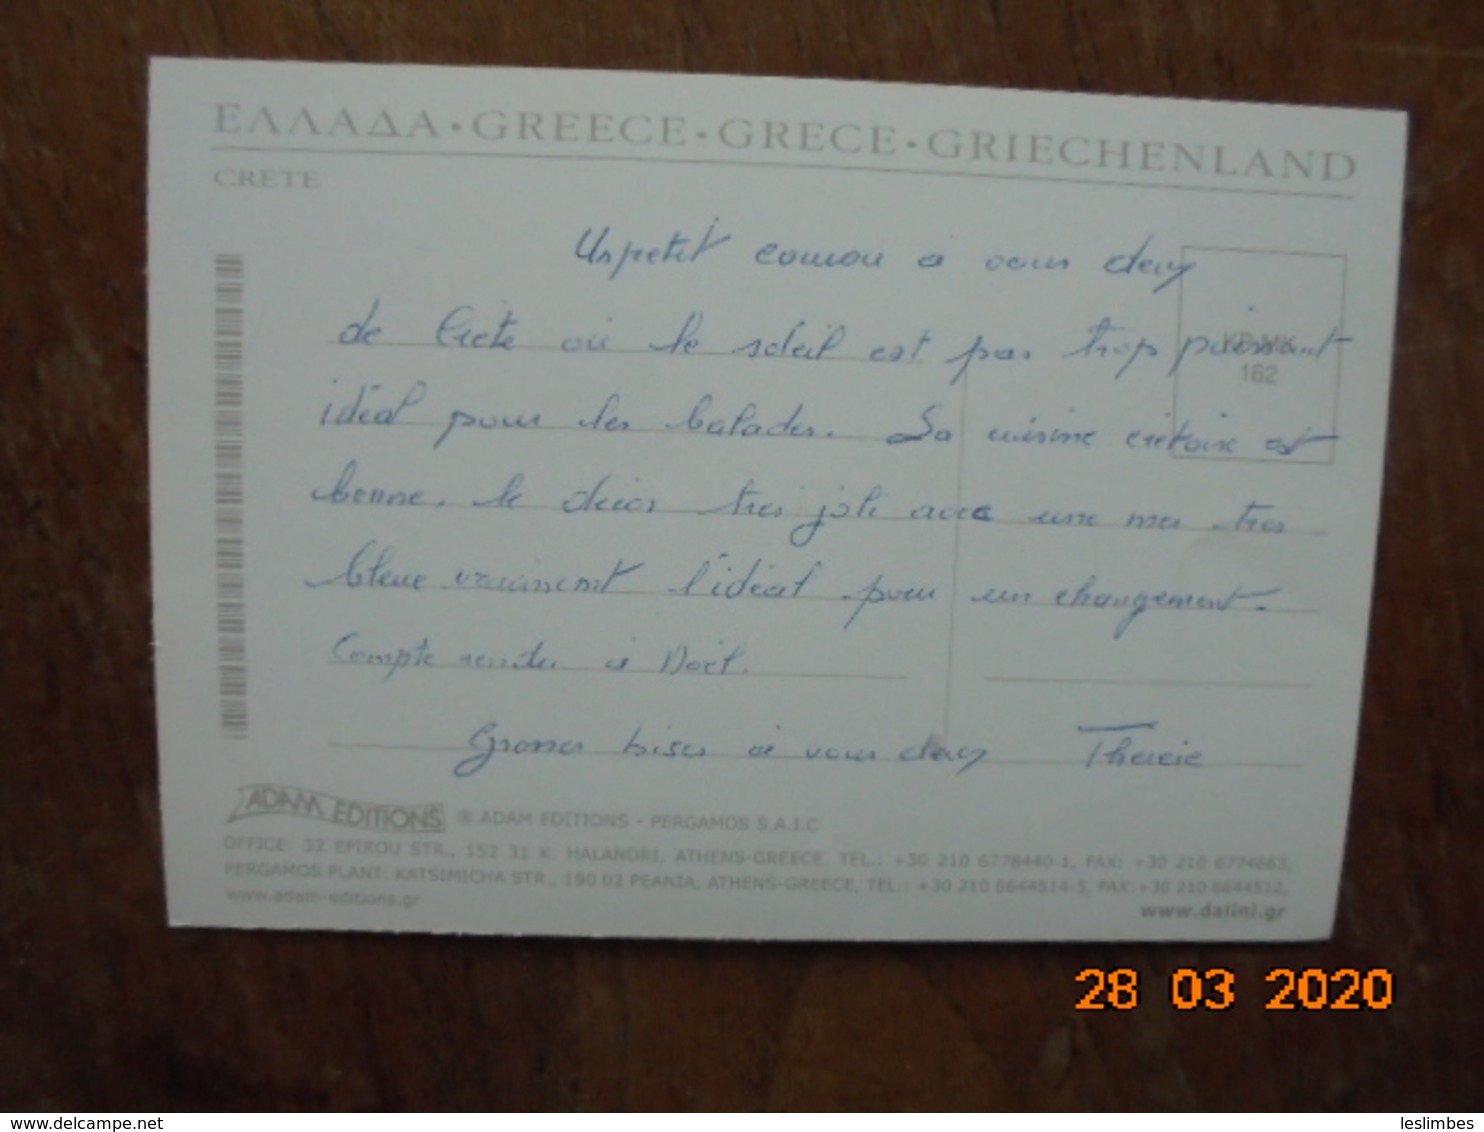 ΕΛΛΑΔΑ • GREECE • GRECE • GRIECHENLAND
CRETE
Un petit coucou à vous deux
de Crète où le soleil est pas trop puissant
162
idéal pour les balades. La cuisine crétoise est
bonne, le décor très joli avec une mer très
bleue vraiment l'idéal pour un changement.
Compte rendu à Noël.
Grosses bises à vous deux Thérèse
ADAM EDITIONS ® ADAM EDITIONS - PERGAMOS S.A.I.C
OFFICE: 32 EPIROU STR., 152 31 K. HALANDRI, ATHENS-GREECE. TEL.: +30 210 6778440-1, FAX: +30 210 6774663,
PERGAMOS PLANT: KATSIMICHA STR., 190 02 PEANIA, ATHENS-GREECE, TEL.: +30 210 6644514-5, FAX:+30 210 6644512,
www.adam-editions.gr www.dalini.gr
28 03 2020
www.delcampe.net leslimbes